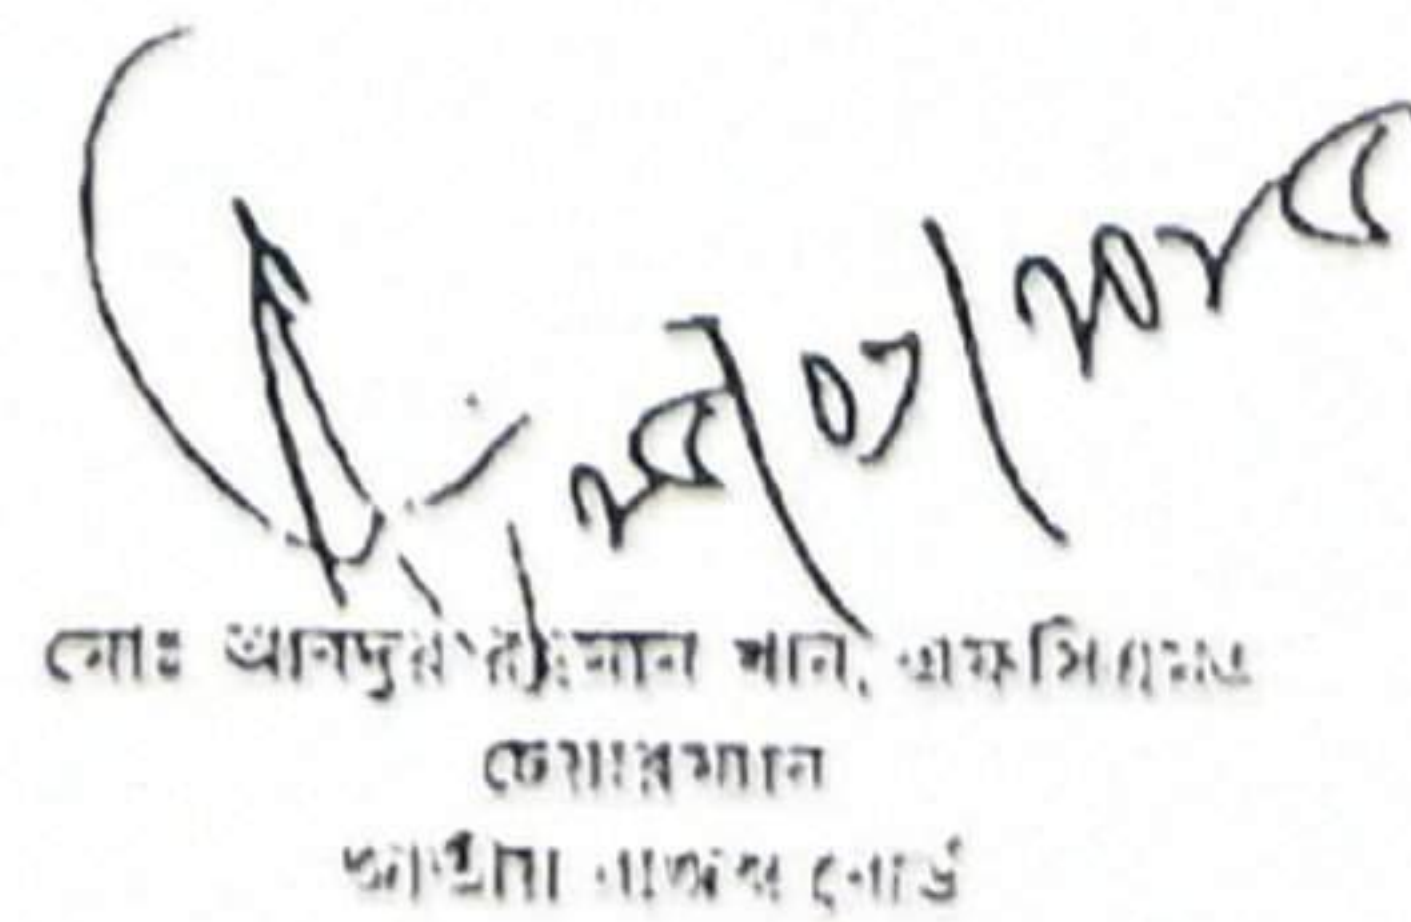 ২৫/০৭/২০২৫
মোঃ আবদুর রহমান খান, এফসিএমএ
চেয়ারম্যান
জাতীয় রাজস্ব বোর্ড